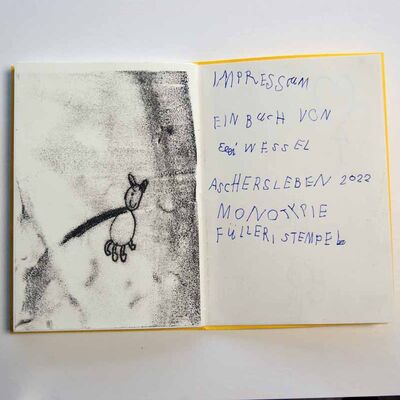 IMPRESSUM
EIN BUCH VON
WESSEL
ASCHERSLEBEN 2022
MONOTYPIE
FÜLLER, STEMPEL